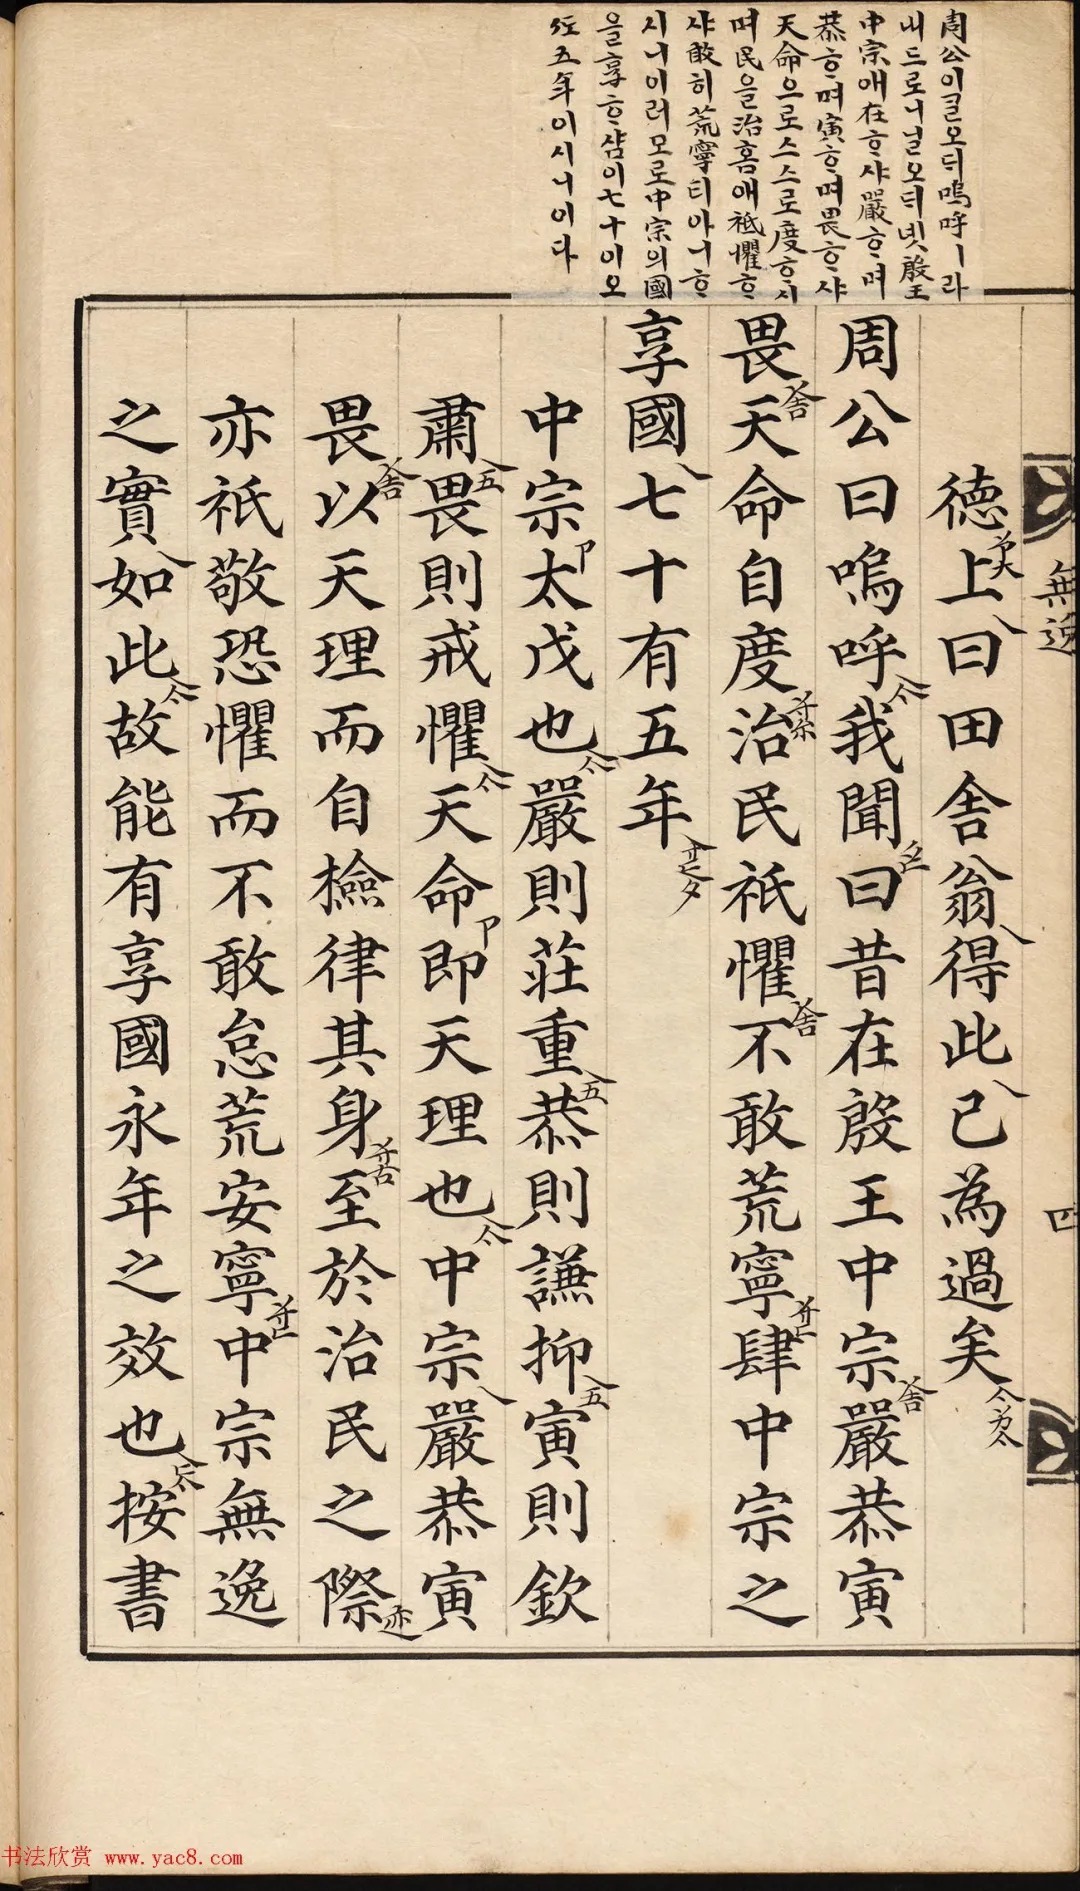 周公이ᄀᆞᆯ오ᄃᆡ嗚呼ㅣ라
내드로니ᄀᆞᆯ오ᄃᆡ녯殷王
中宗애在ᄒᆞ샤嚴ᄒᆞ며
恭ᄒᆞ며寅ᄒᆞ며畏ᄒᆞ샤
天命으로스스로度ᄒᆞ시
며民을治홈애祗懼ᄒᆞ
샤敢히荒寧티아니ᄒᆞ
시니이러모로中宗의國
을享ᄒᆞ샴이七十이오
五年이시니이다
無逸
四
德上曰田舍翁得此已為過矣
周公曰嗚呼我聞曰昔在殷王中宗嚴恭寅
畏天命自度治民祗懼不敢荒寧肆中宗之
享國七十有五年
中宗太戊也嚴則莊重恭則謙抑寅則欽
肅畏則戒懼天命即天理也中宗嚴恭寅
畏以天理而自檢律其身至於治民之際
亦祗敬恐懼而不敢怠荒安寧中宗無逸
之實如此故能有享國永年之效也按書
书法欣赏 www.yac8.com